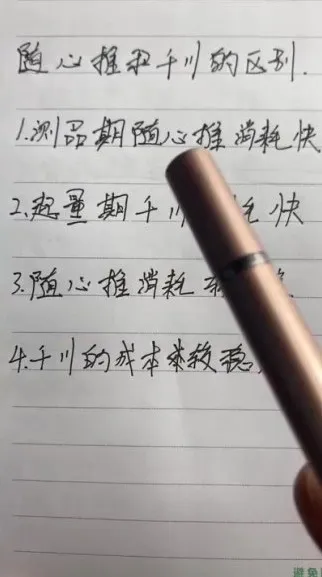 随心推和千川的区别.
1.测品期随心推消耗快
2.起量期千川耗快
3.随心推消耗
4.千川的成本较稳.
避免